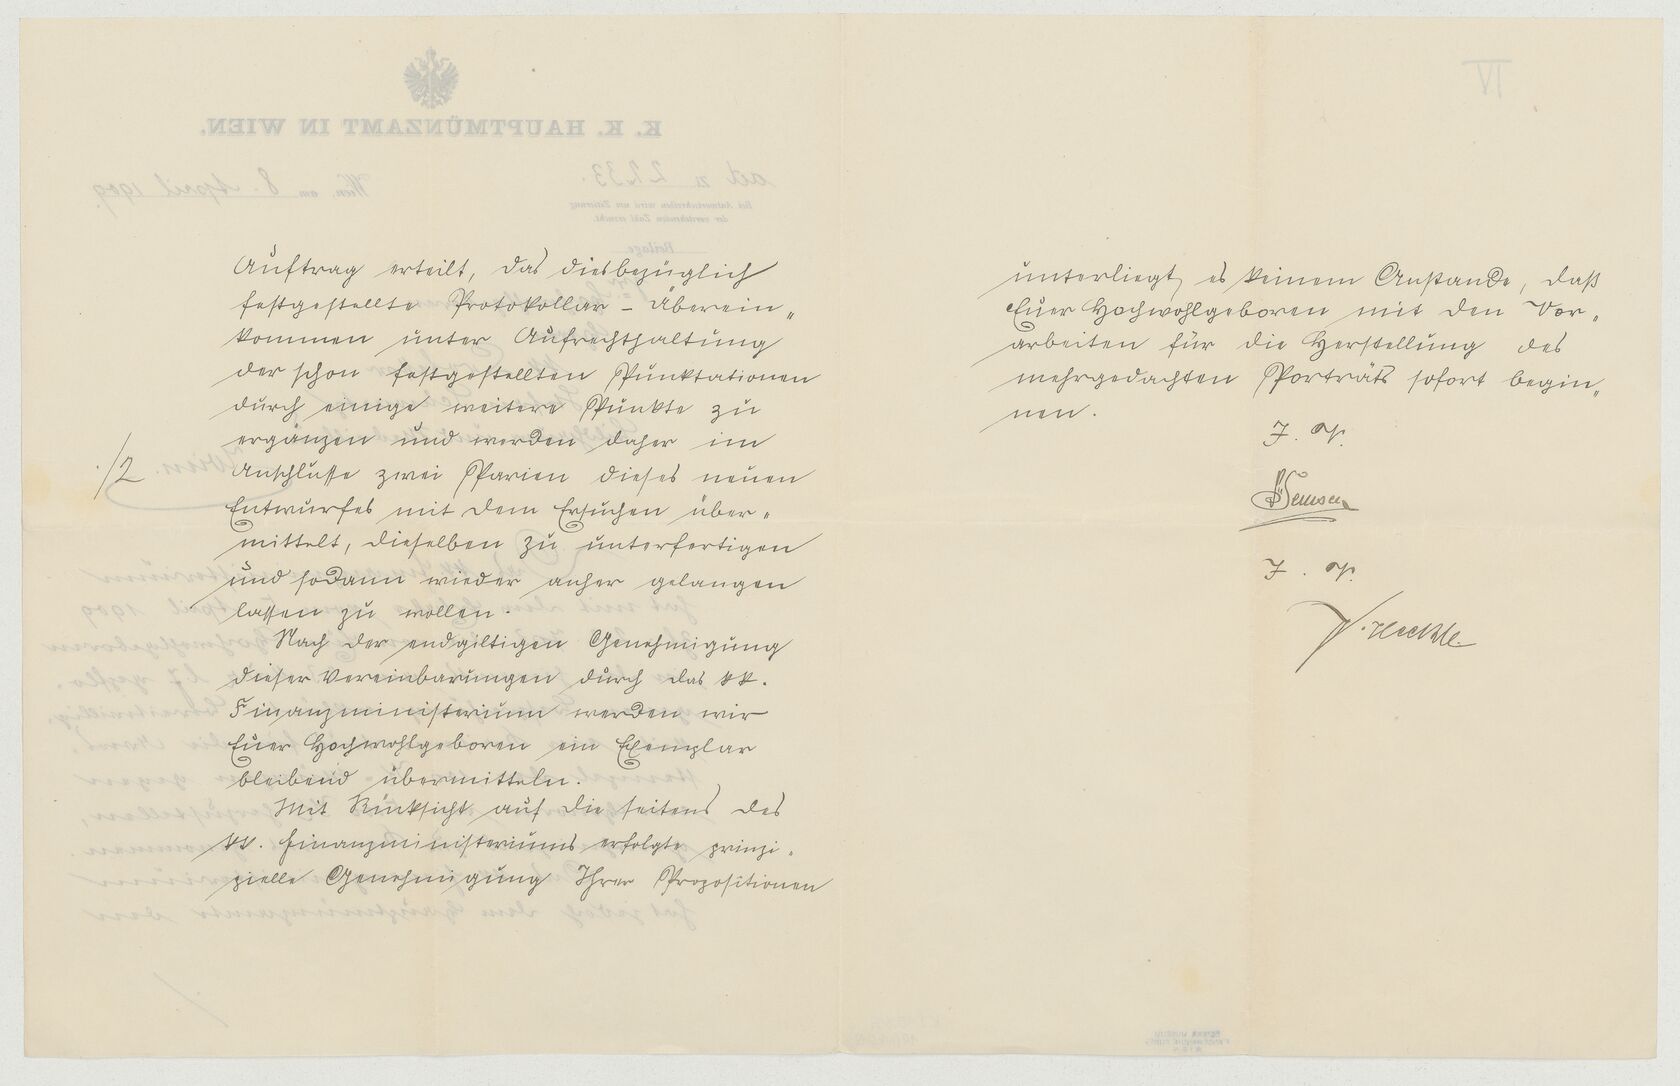 Auftrag erteilt, das diesbezüglich
festgestellte Protokollar-Überein„
kommen unter Aufrechthaltung
der schon festgestellten Punktationen
durch einige weitere Punkte zu
ergänzen und werden daher im
./2
Anschlusse zwei Parien dieses neuen
Entwurfes mit dem Ersuchen über„
mittelt, dieselben zu unterfertigen
und sodann wieder anher gelangen
lassen zu wollen.
Nach der endgiltigen Genehmigung
dieser Vereinbarungen durch das kk.
Finanzministerium werden wir
Euer Hochwohlgeboren ein Exemplar
bleibend übermitteln.
Mit Rücksicht auf die seitens des
kk. Finanzministeriums erfolgte prinzi„
pielle Genehmigung Ihrer Propositionen
unterliegt es keinem Anstande, daß
Euer Hochwohlgeboren mit den Vor„
arbeiten für die Herstellung des
mehrgedachten Porträts sofort begin„
nen.
K. K. HAUPTMÜNZAMT IN WIEN.
ad Z 2233.
Wien, am 8. April 1909.
Bei Antwortschreiben wird um Zitierung
der vorstehenden Zahl ersucht.
Beilage
IV